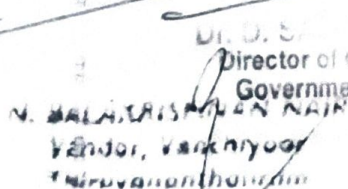 Dr. D.
Director of
Governme
N. BALAKRISHNAN NAIR
Vendor, Vanchiyoor
Thiruvananthapuram